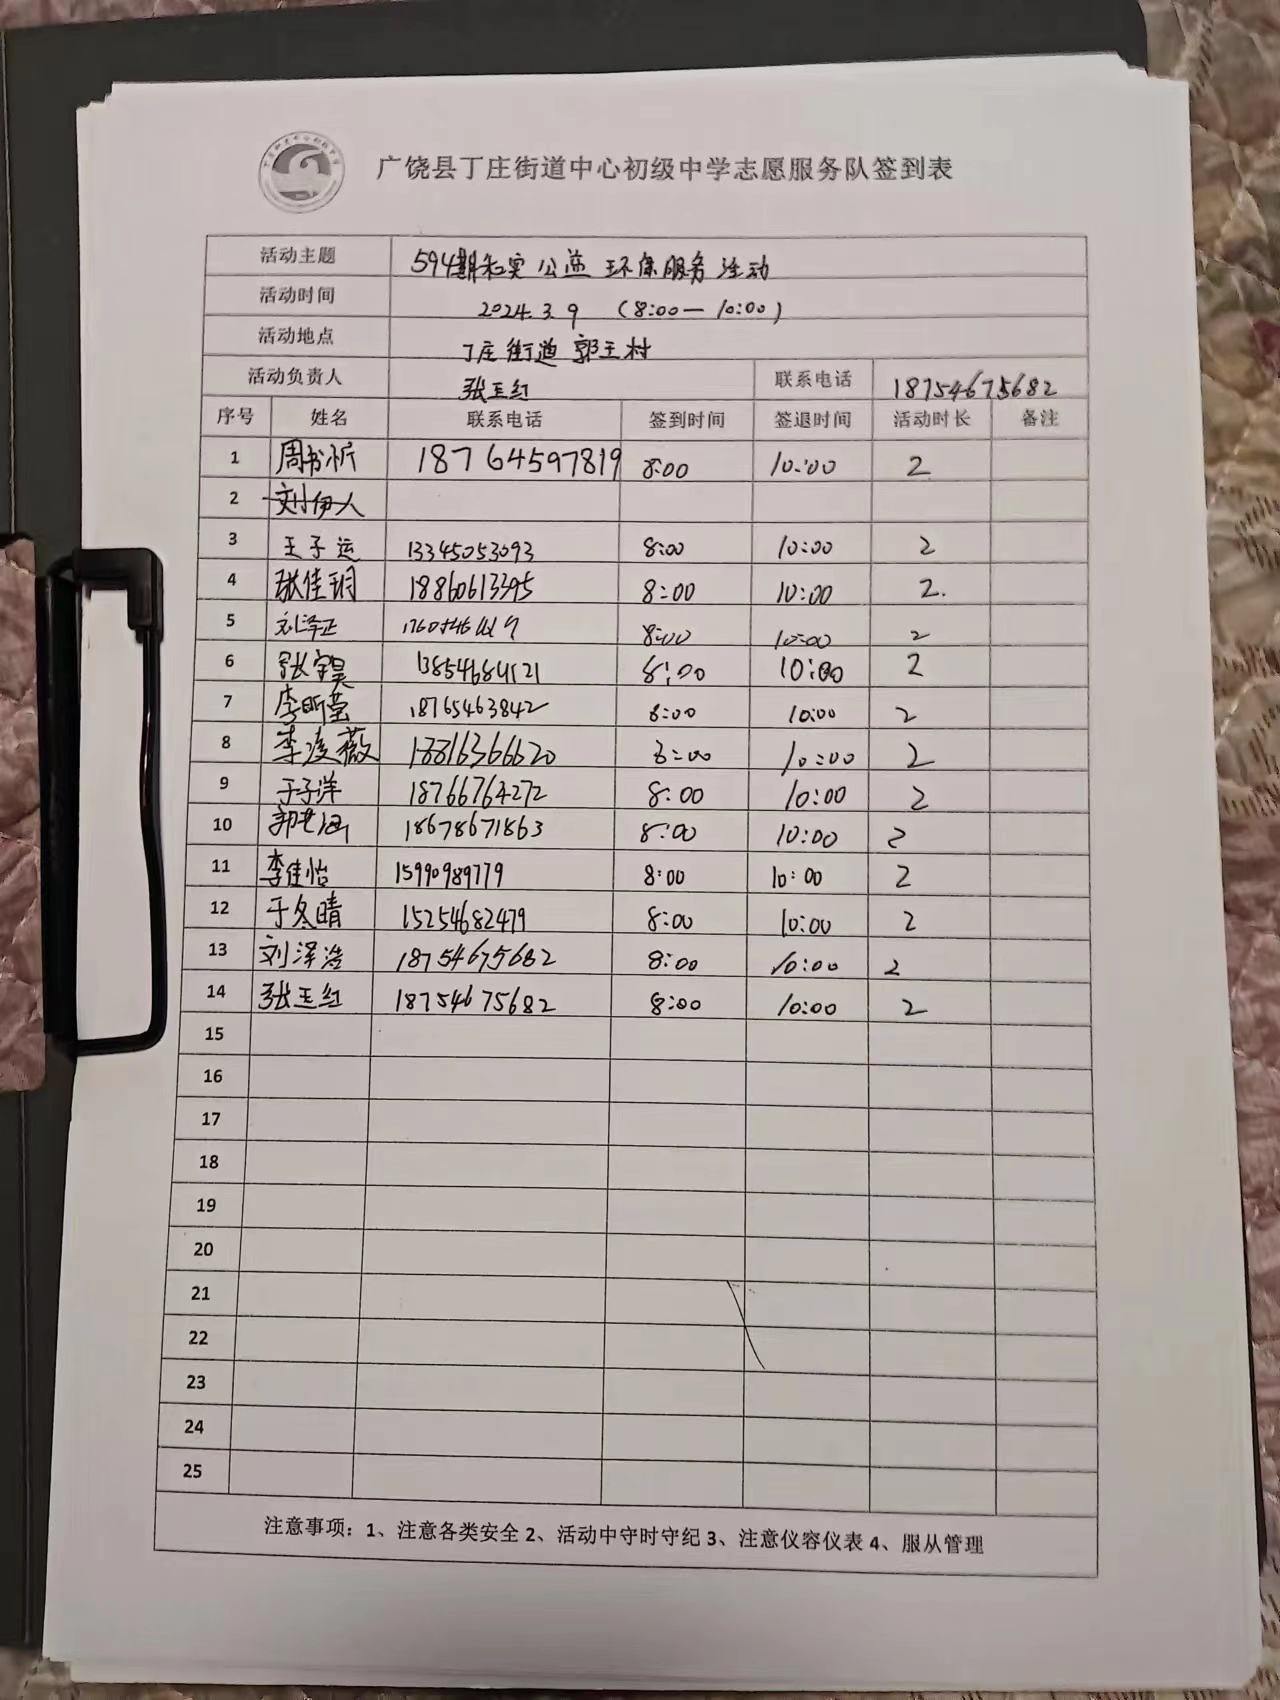 广饶县丁庄街道中心初级中学志愿服务队签到表
活动主题 594期和实公益环保服务活动
活动时间 2024.3.9 (8:00—10:00)
活动地点 丁庄街道郭王村
活动负责人 张玉红 联系电话 18754675682
序号 姓名 联系电话 签到时间 签退时间 活动时长 备注
1 周书忻 18764597819 8:00 10:00 2
2 刘伊人
3 王子运 13345053093 8:00 10:00 2
4 张佳玥 18860613395 8:00 10:00 2.
5 刘泽正 8:00 10:00 2
6 张宇昊 13854684121 8:00 10:00 2
7 李昕莹 18765463842 8:00 10:00 2
8 李凌薇 18816366620 8:00 10:00 2
9 于子洋 18766764272 8:00 10:00 2
10 郭艺涵 18678671863 8:00 10:00 2
11 李佳怡 15990989779 8:00 10:00 2
12 于冬晴 15254682479 8:00 10:00 2
13 刘泽浩 18754675682 8:00 10:00 2
14 张玉红 18754675682 8:00 10:00 2
15
16
17
18
19
20
21
22
23
24
25
注意事项：1、注意各类安全 2、活动中守时守纪 3、注意仪容仪表 4、服从管理